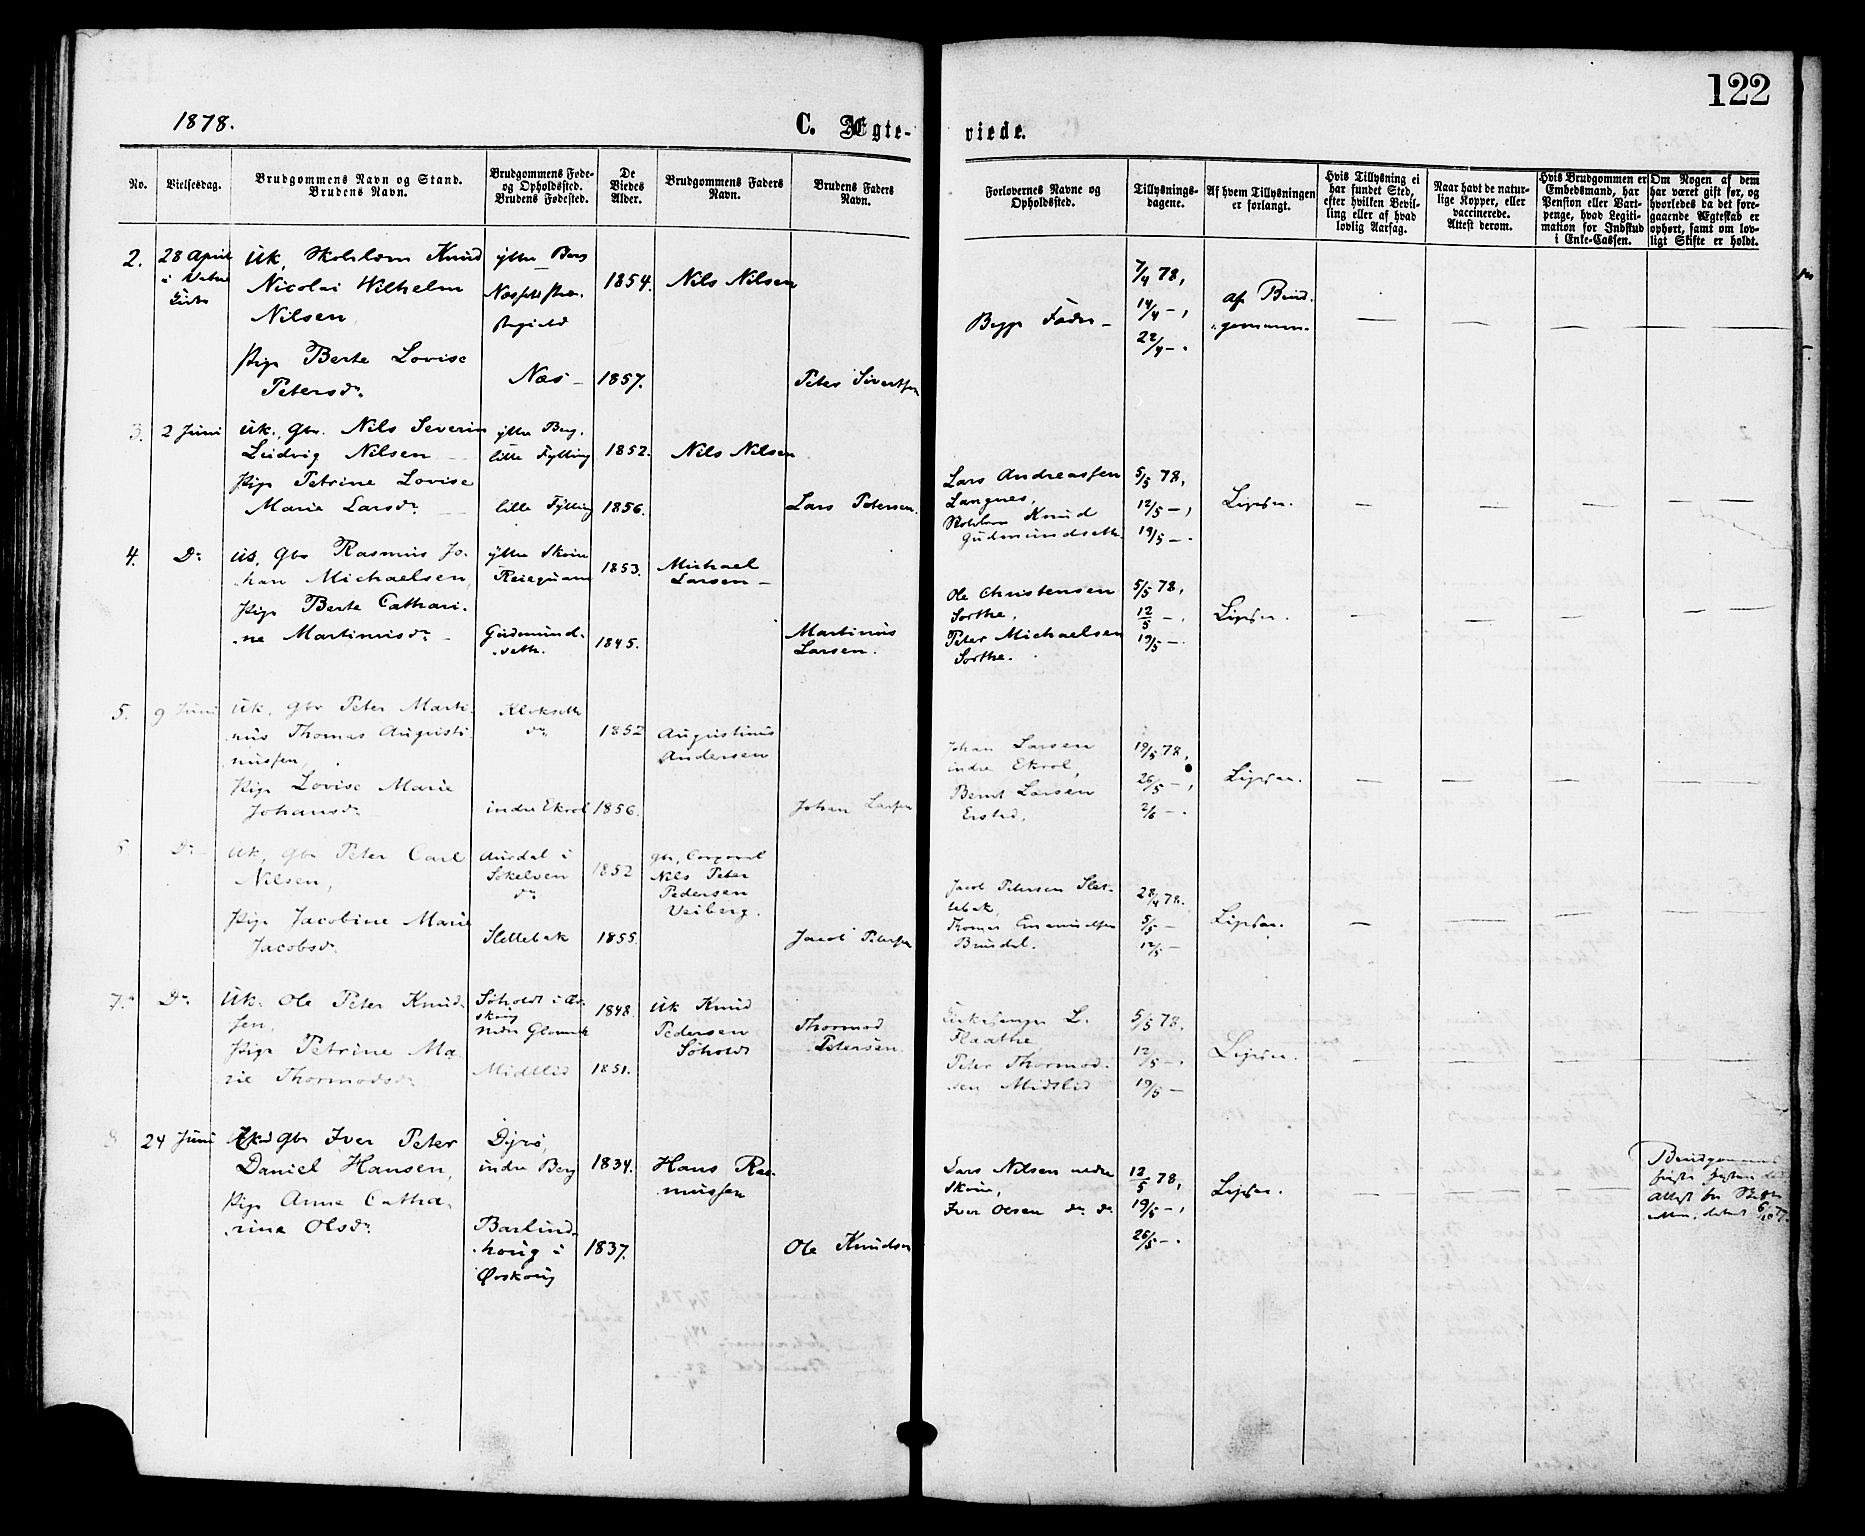 122
1878.
C. Ægte-
viede.
No.
Vielsesdag.
Brudgommens Navn og Stand.
Brudens Navn.
Brudgommens Føde-
og Opholdssted.
Brudens Fødested.
De
Viedes
Alder.
Brudgommens Faders
Navn.
Brudens Faders
Navn.
Forlovernes Navne og
Opholdssted.
Tillysnings-
dagene.
Af hvem Tillysningen
er forlangt.
Hvis Tillysning ei
har fundet Sted,
efter hvilken Bevil-
ling eller af hvad
lovlig Aarsag.
Naar havt de natur-
lige Kopper, eller
vaccinerede.
Attest derom.
Hvis Brudgommen er
Embedsmand, har
Pension eller Vart-
penge, hvad Legiti-
mation for Indskud
i Enke-Cassen.
Om Nogen af dem
har været gift før, og
hvorledes da det fore-
gaaende Ægteskab er
ophørt, samt om lov-
ligt Skifte er holdt.
2.
28 April
i Vatne
Kirke
Uk, Skolelærer Knud
Nicolai Wilhelm
Nilsen
Pige Berte Lovise
Petersdr
ytre Berg
Næs
1854.
1857.
Nils Nilsen
Peter Sivertsen
Begge Fædre
7/4 78,
14/4 -,
22/4 -.
af Brud-
gommen
3.
2 Juni
Uk., Gbr. Nils Severin
Ludvig Nilsen
Pige Petrine Lovise
Marie Larsdr
ytre Berg,
lille Fylling
lille Fylling
1852.
1856.
Nils Nilsen
Lars Petersen.
Lars Andreassen
Langnes,
Knud
Gudmundseth.
5/5 78,
12/5 -,
19/5 -.
Ligesaa.
4.
Do
Uk, Gbr Rasmus Jo-
han Michaelsen,
Pige Berte Cathari-
ne Martinusdr
ytre
Gudmund-
seth.
1853.
1845.
Michael
Larsen
Martinus
Larsen.
Ole Christensen
Sorthe,
Peter Michaelsen
Sorthe.
5/5 78,
12/5 -.
19/5 -
Ligesaa.
5.
9 Juni
Uk, Gbr Peter Marti-
nus Thomas Augusti-
nussen,
Pige Lovise Marie
Johansdr
Klokseth
do
indre Ekrol
1852
1856.
Augustinus
Andersen
Johan Larsen
Johan Larsen
indre Ekrol,
Bernt Larsen
Ersted,
19/5 78,
26/5 -,
2/6 -.
Ligesaa.
6
Do
Uk, Gbr Peter Carl
Nilsen,
Pige Jacobine Marie
Jacobsdr
Aursdal i
Søkelven
do
Slettebak
1852
1855.
Gbr, Corporal
Nils Peter
Pedersen
Veiberg.
Jacob Petersen
Jacob Petersen Slet-
tebak,
Thomas
Brusdal.
28/4 78.
5/5 -
12/5 -
Ligesaa.
7.
Do
Uk. Ole Peter Knud-
sen,
Pige Petrine Ma-
rie Thormodsdr
Søholdt i Ør-
skoug
Midtlid
1848.
1851.
Uk Knud
Pedersen
Søholdt
Thormod
Petersen.
Kirkesanger L.
Flaathe
Peter Thormod-
sen Midtlid
5/5 78,
12/5 -.
19/5 -
Ligesaa.
8
24 Juni
Gbr Iver Peter
Daniel Hansen,
Pige Anne Catha-
rina Olsdr
Dyrø,
indre Berg
Barlind-
houg i
Ørskoug
1834.
1837.
Hans Ras-
mussen
Ole Knudsen
Lars Nilsen nedre
Skoue,
Iver Olsen do do
12/5 78,
19/5 -,
26/5 -.
Ligesaa.
Brudgommens